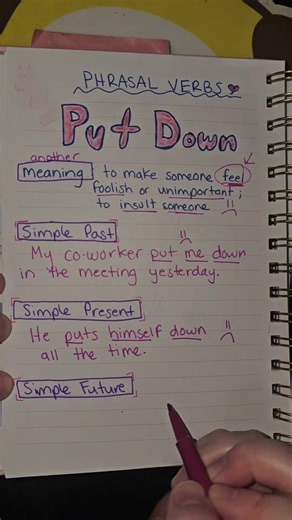 PHRASAL VERBS
Put Down
another
meaning to make someone feel
foolish or unimportant;
to insult someone
Simple Past
My co-worker put me down
in the meeting yesterday.
Simple Present
He puts himself down
all the time.
Simple Future